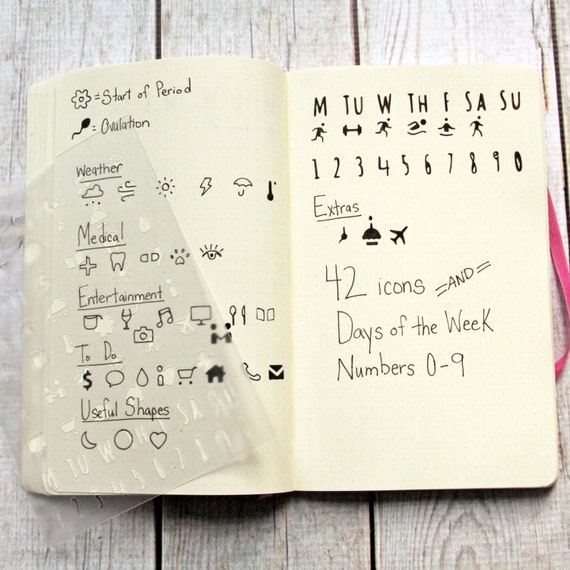 = Start of Period
= Ovulation
Weather
Medical
Entertainment
To Do
$
Useful Shapes
M TU W TH F SA SU
1 2 3 4 5 6 7 8 9 0
Extras
42 icons =AND=
Days of the Week
Numbers 0-9
M TU W TH F SA SU
1 2 3 4 5 6 7 8 9 0